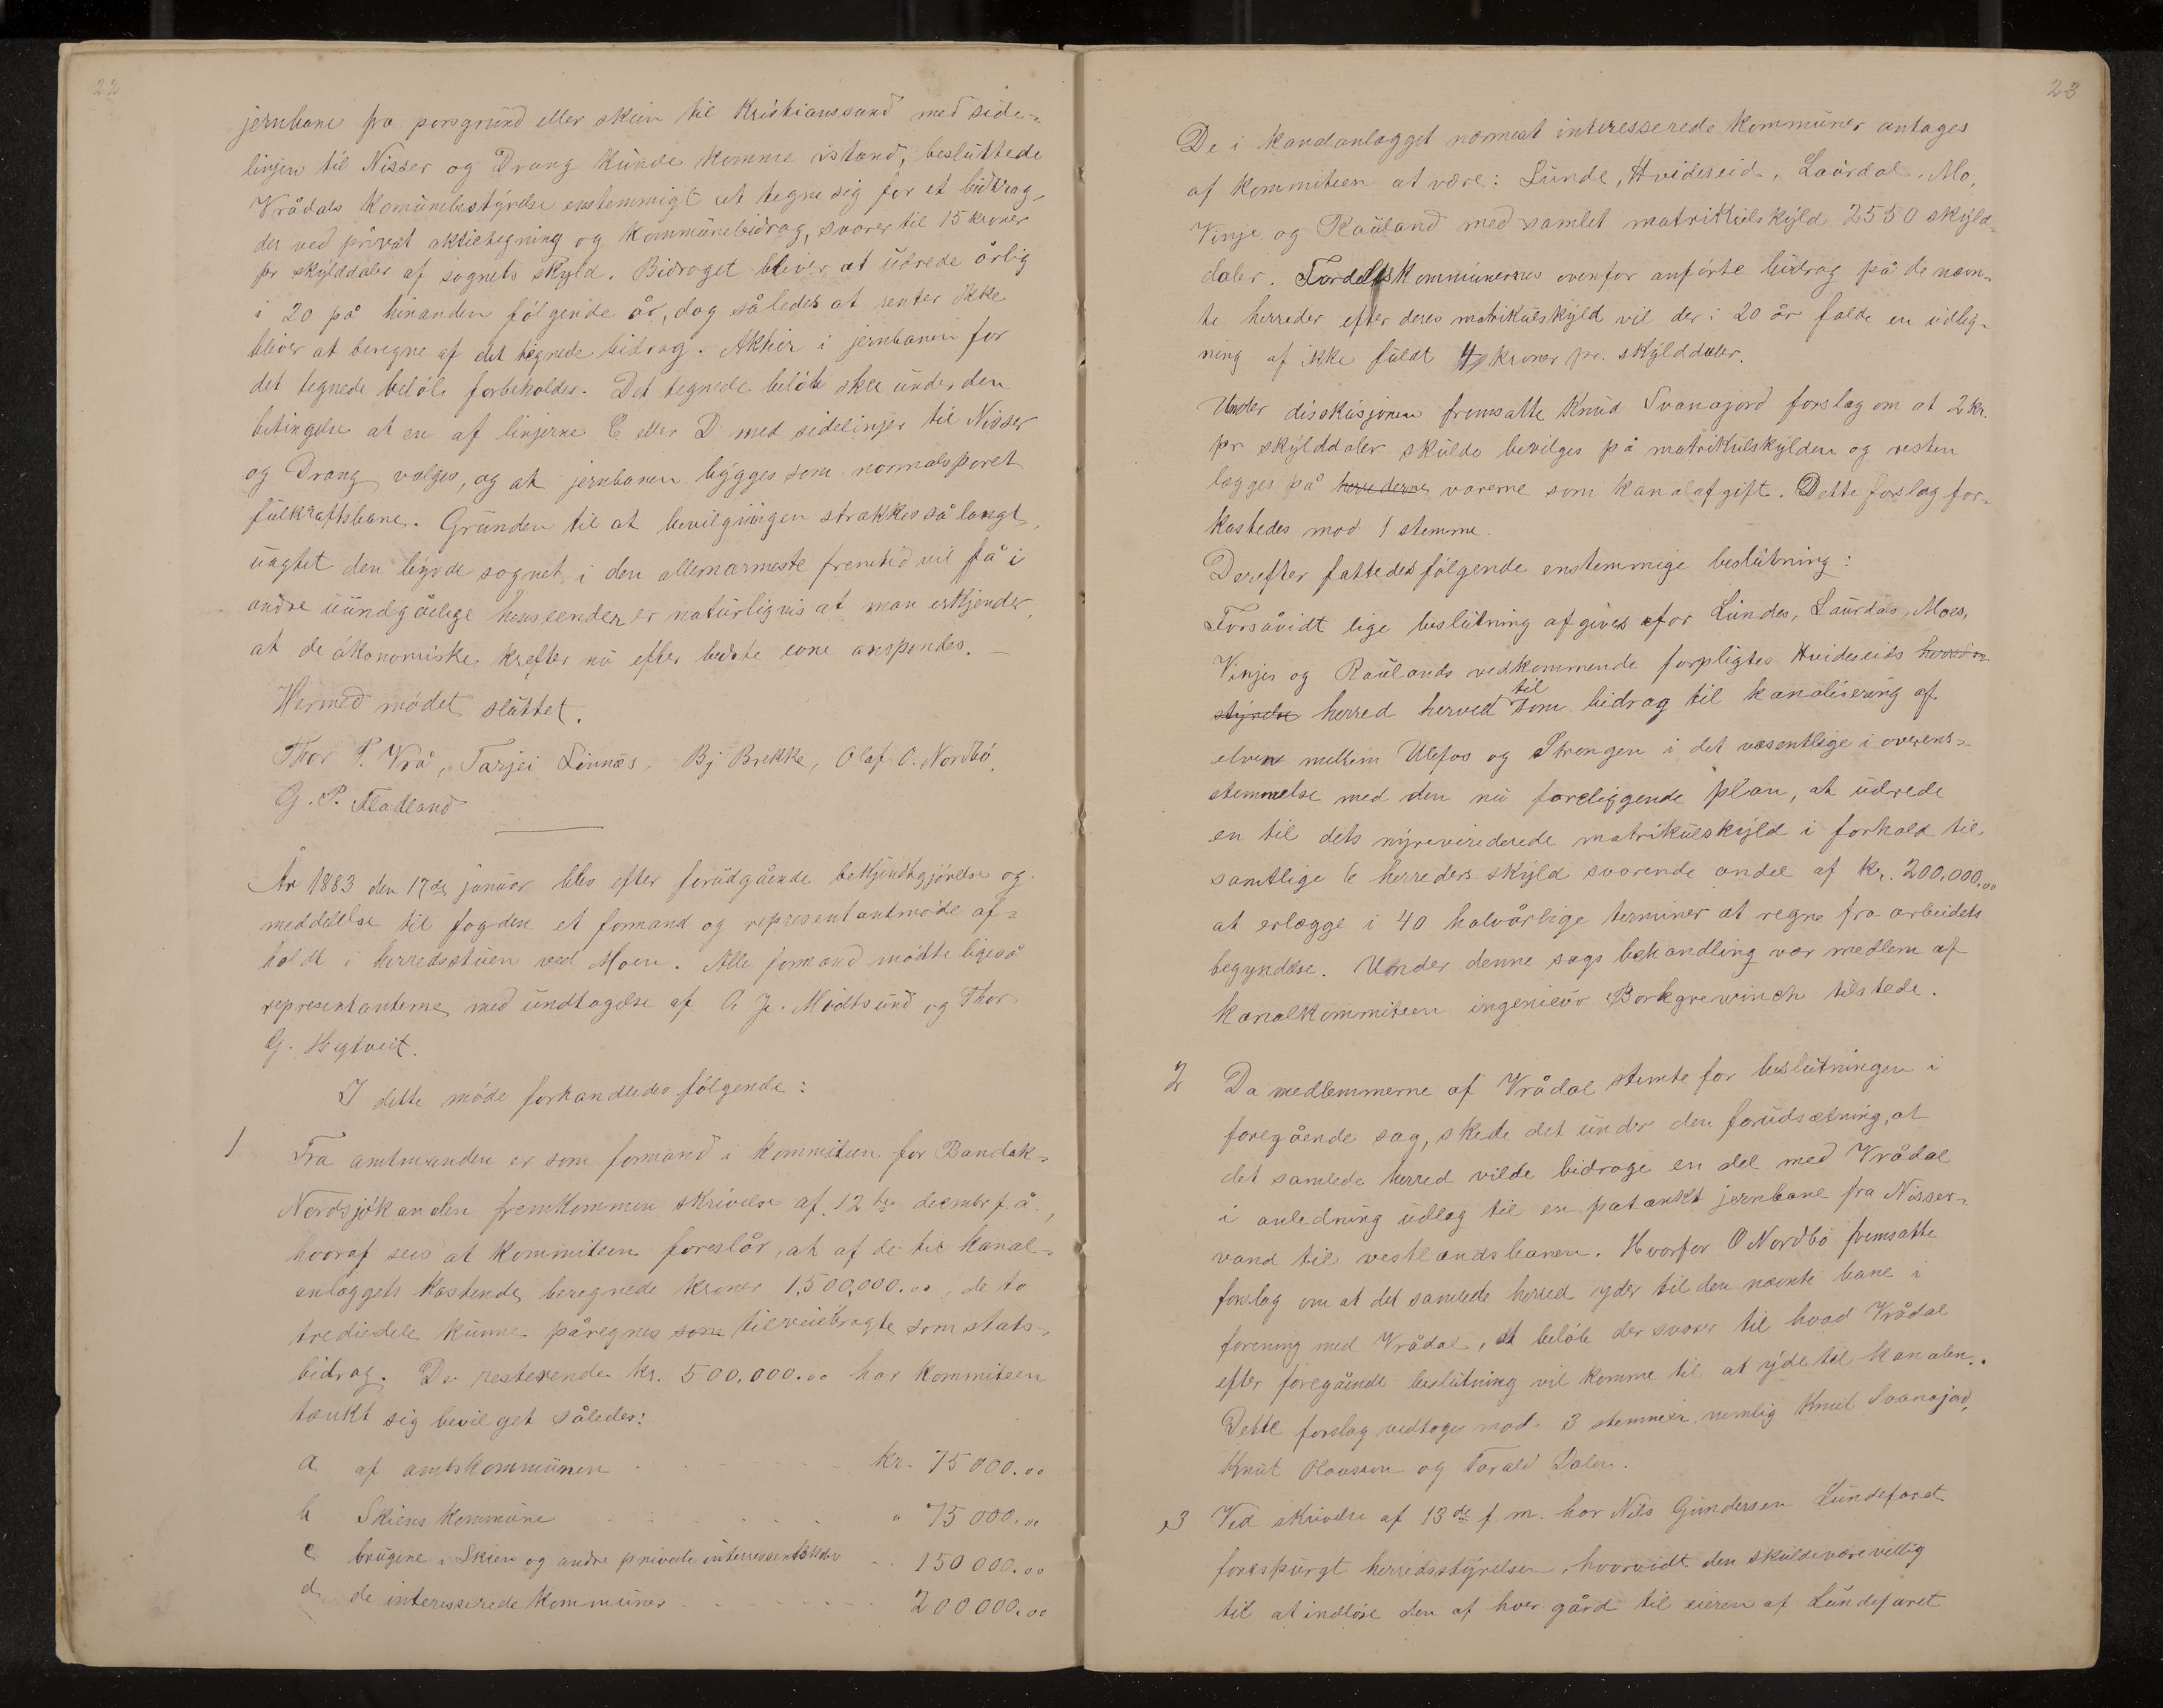 22
jernbane fra porsgrund eller skien til Kristianssand med side-
linjen til Nisser og Drang kunde komme istand, besluttede
Vrådals komunebestyrelse enstemmigt at tegne sig for et bidrag,
der ved privat aktietegning og kommunebidrag, svarer til 15 kroner
pr skylddaler af sognets skyld. Bidraget bliver at udrede årlig
i 20 på hinanden følgende år, dog således at renter ikke
bliver at beregne af det tegnede bidrag. Aktier i jernbanen for
det tegnede beløb forbeholdes. Det tegnede beløb sker under den
betingelse at en af linjerne C eller D med sidelinjer til Nisser
og Drang vælges, og at jernbanen bygges som normalsporet
fulkraftsbane. Grunden til at bevilgningen strækkes så langt,
uagtet den byrde sognet i den allernærmeste fremtid vil få i
andre uundgåelige henseender er naturligvis at man erkjender,
at de økonomiske krefter nu efter bedste evne anspændes. —
Hermed mødet sluttet.
Thor P. Vrå, Tarjei Linnæs, Bj Brekke, Olaf O. Nordbø,
G. P. Fladland
År 1883 den 17de januar blev efter forudgående bekjendtgjørelse og
meddelelse til fogden et formand og representantmøde af-
holdt i herredsstuen ved Moen. Alle formænd mødte ligeså
representanterne med undtagelse af A J. Midtsund og Thor
G. Hegtveit.
I dette møde forhandledes følgende:
1 Fra amtmanden er som formand i kommiteen for Bandak-
Nordsjøkanalen fremkommen skrivelse af 12te decembr f. å.,
hvoraf sees at kommiteen foreslår, at af de til kanal-
anlæggets kostende beregnede kroner 1,500,000.00, de to
trediedele kunne påregnes som tilveiebragte som stats-
bidrag. De resterende kr. 500,000.00 har kommiteen
tænkt sig bevilget således:
a af amtskommunen kr. 75000.00
b Skiens kommune " 75000.00
c brugene i Skien og andre private interressentskaber " 150000.00
d de interesserede kommuner 200000.00
23
De i kanalanlægget nærmest interesserede kommuner antages
af kommiteen at være: Lunde, Hvideseid, Laurdal, Mo,
Vinje og Rauland med samlet matrikulskyld 2550 skyld-
daler. Fordeles kommunernes ovenfor anførte bidrag på de nævn-
te herreder efter deres matrikulskyld vil der i 20 år falde en udlig-
ning af ikke fuldt 4 kroner pr. skylddaler.
Under diskusjonen fremsatte Knud Svanajord forslag om at 2 kr.
pr skylddaler skulde bevilges på matrikulskylden og resten
lægges på herrederne varerne som kanalafgift. Dette forslag for-
kastedes mod 1 stemme.
Derefter fattedes følgende enstemmige beslutning:
Forsåvidt lige beslutning afgives for Lundes, Laurdals, Moes,
Vinjes og Raulands vedkommende forpligtes Hvideseids herreds-
styrelse herred herved til som bidrag til kanalisering af
elven mellem Ulefos og Strengen i det væsentlige i overens-
stemmelse med den nu foreliggende plan, at udrede
en til dets nyreviderede matrikulskyld i forhold til
samtlige 6 herreders skyld svarende andel af kr. 200,000,00
at erlægge i 40 halvårlige terminer at regne fra arbeidets
begyndelse. Under denne sags behandling var medlem af
kanalkommiteen ingeniør Borkgrewinch tilstede.
2 Da medlemmerne af Vrådal stemte for beslutningen i
foregående sag, skede det under den forudsætning, at
det samlede herred vilde bidrage en del med Vrådal
i anledning udlæg til en påtænkt jernbane fra Nisser-
vand til vestlandsbanen. Hvorfor O Nordbø fremsatte
forslag om at det samlede herred yder til den nævnte bane i
forening med Vrådal, et beløb der svarer til hvad Vrådal
efter foregående beslutning vil komme til at yde til kanalen.
Dette forslag vedtoges mod 3 stemmer nemlig Knut Svanajord,
Knut Olavsson og Torald Dalen.
3 Ved skrivelse af 13de f m. har Nils Gundersen Lundefaret
forespurgt herredsstyrelsen, hvorvidt den skulde være villig
til at indløse den af hver gård til eieren af Lundefaret